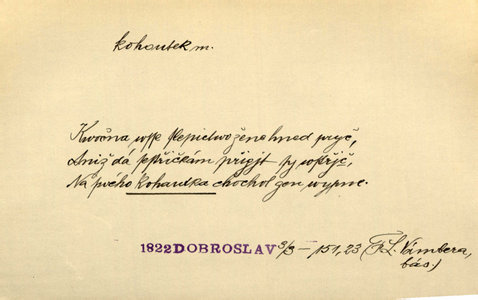 kohoutek m.
Kwočna slepictwo žene hned pryč,
Aniž dá sestřičkám přigjt wstřjč,
Na swého Kohautka chochol gen wypne.
1822 DOBROSLAV 3/3 – 151, 23 (F. L. Vambera,
bás.)